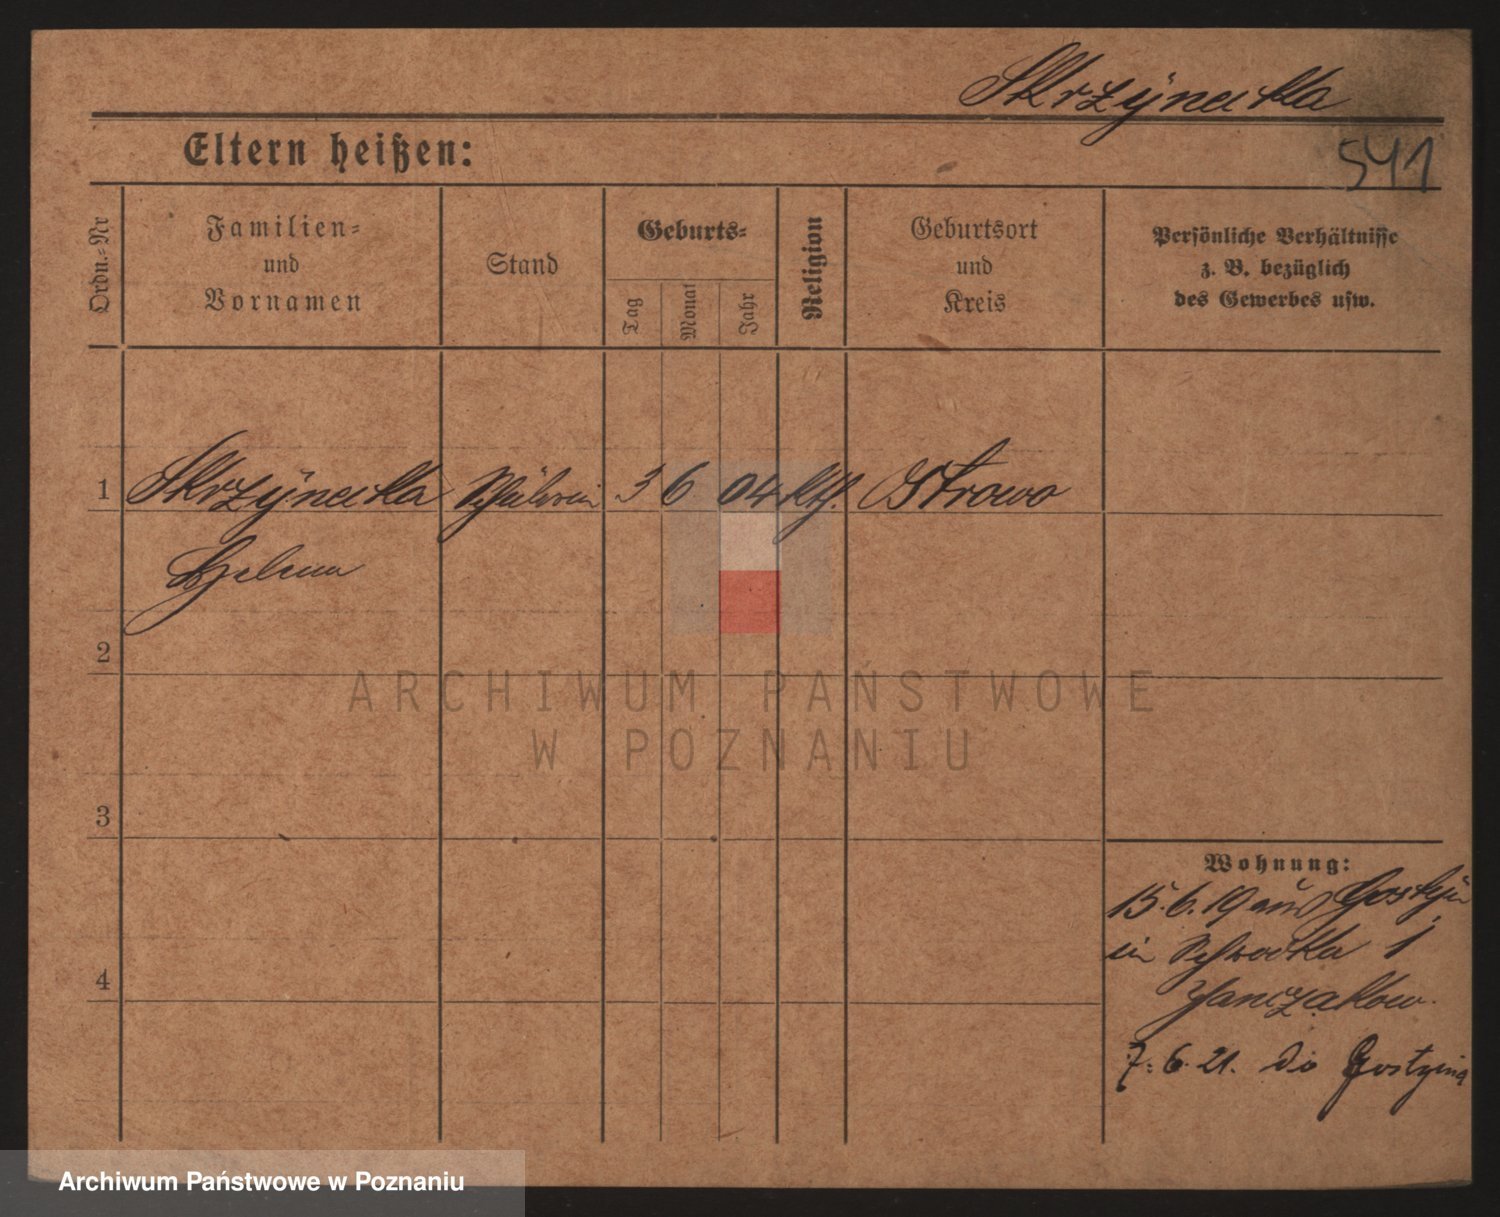 Skrzÿnecka
541
Eltern heißen:
Ordn.-Nr
Familien-
und
Vornamen
Stand
Geburts-
Tag
Monat
Jahr
Religion
Geburtsort
und
Kreis
Persönliche Verhältnisse
z. B. bezüglich
des Gewerbes usw.
1 Skrzÿnecka Schülerin 3 6 04 kth. Ostrowo
Helena
2
ARCHIWUM PAŃSTWOWE
W POZNANIU
3
Wohnung:
15.6.19 aus Gostyn
in 1
4
7.6.21. do Gostynia
Archiwum Państwowe w Poznaniu